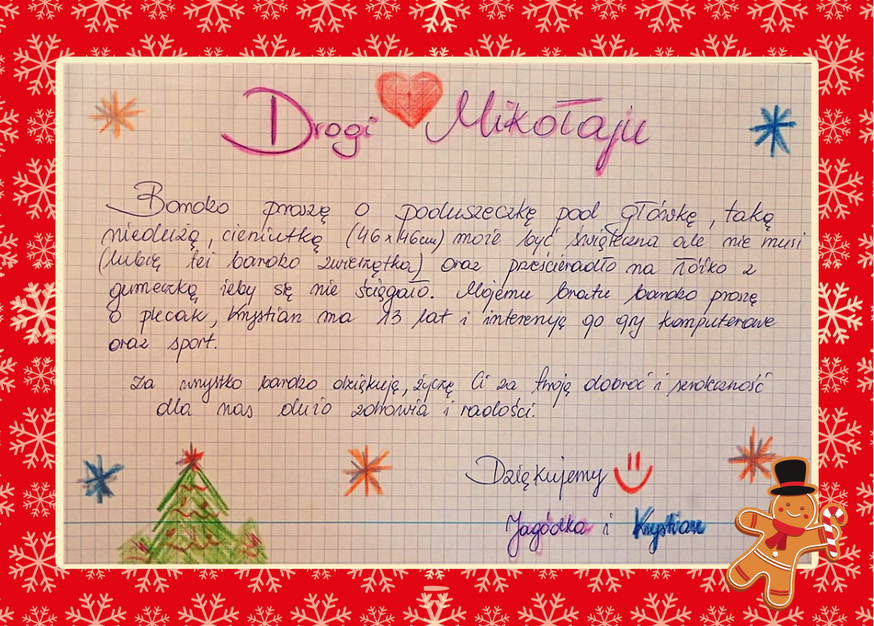 Drogi Mikołaju
Bardzo proszę o poduszeczkę pod główkę, taką
niedużą, cieniutką (46x46cm) może być świąteczna ale nie musi
(lubię też bardzo zwierzętka) oraz prześcieradło na łóżko z
gumeczką żeby się nie ściągało. Mojemu bratu bardzo proszę
o plecak, Krystian ma 13 lat i interesują go gry komputerowe
oraz sport.
Za wszystko bardzo dziękuję, życzę Ci za twoją dobroć i serdeczność
dla nas dużo zdrowia i radości.
Dziękujemy
Jagódka i Krystian